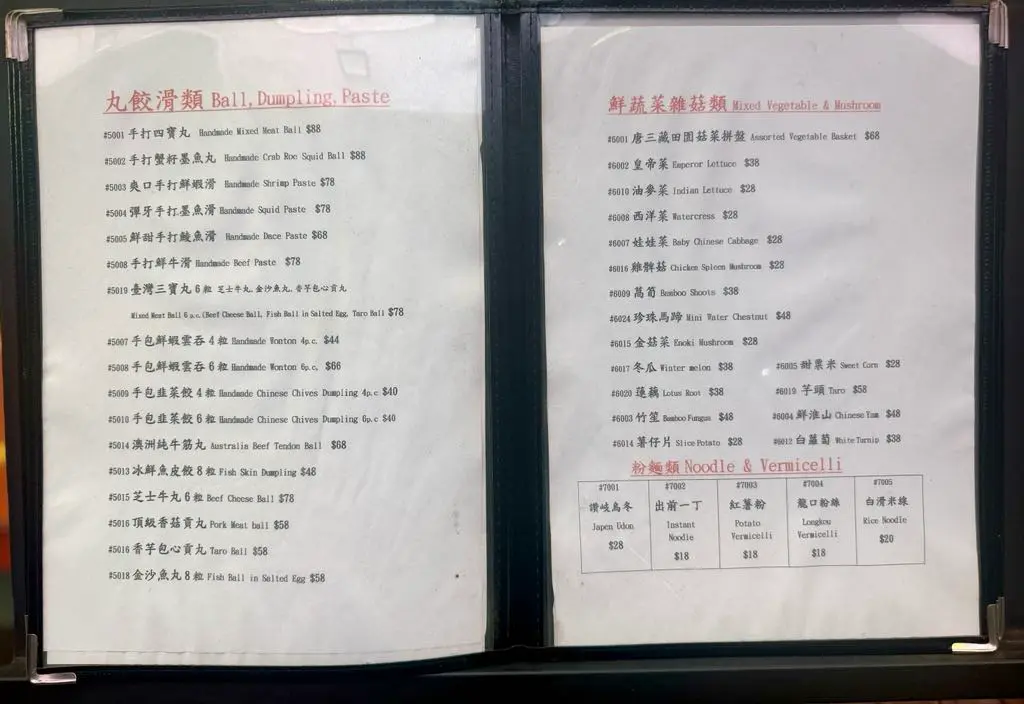 丸餃滑類 Ball,Dumpling,Paste
#5001 手打四寶丸 Handmade Mixed Meat Ball $88
#5002 手打蟹籽墨魚丸 Handmade Crab Roe Squid Ball $88
#5003 爽口手打鮮蝦滑 Handmade Shrimp Paste $78
#5004 彈牙手打墨魚滑 Handmade Squid Paste $78
#5005 鮮甜手打鯪魚滑 Handmade Dace Paste $68
#5008 手打鮮牛滑 Handmade Beef Paste $78
#5019 臺灣三寶丸 6 粒 芝士牛丸,金沙魚丸,香芋包心貢丸
Mixed Meat Ball 6 p.c.(Beef Cheese Ball, Fish Ball in Salted Egg, Taro Ball $78
#5007 手包鮮蝦雲吞 4 粒 Handmade Wonton 4p.c. $44
#5008 手包鮮蝦雲吞 6 粒 Handmade Wonton 6p.c. $66
#5009 手包韭菜餃 4 粒 Handmade Chinese Chives Dumpling 4p.c $40
#5010 手包韭菜餃 6 粒 Handmade Chinese Chives Dumpling 6p.c $40
#5014 澳洲純牛筋丸 Australia Beef Tendon Ball $68
#5013 冰鮮魚皮餃 8 粒 Fish Skin Dumpling $48
#5015 芝士牛丸 6 粒 Beef Cheese Ball $78
#5016 頂級香菇貢丸 Pork Meat ball $58
#5016 香芋包心貢丸 Taro Ball $58
#5018 金沙魚丸 8 粒 Fish Ball in Salted Egg $58
鮮蔬菜雜菇類 Mixed Vegetable & Mushroom
#6001 唐三藏田園菇菜拼盤 Assorted Vegetable Basket $68
#6002 皇帝菜 Emperor Lettuce $38
#6010 油麥菜 Indian Lettuce $28
#6008 西洋菜 Watercress $28
#6007 娃娃菜 Baby Chinese Cabbage $28
#6016 雞髀菇 Chicken Spleen Mushroom $28
#6009 萵筍 Bamboo Shoots $38
#6024 珍珠馬蹄 Mini Water Chestnut $48
#6015 金菇菜 Enoki Mushroom $28
#6017 冬瓜 Winter melon $38 #6005 甜粟米 Sweet Corn $28
#6020 蓮藕 Lotus Root $38 #6019 芋頭 Taro $58
#6003 竹笙 Bamboo Fungus $48 #6004 鮮淮山 Chinese Yam $48
#6014 薯仔片 Slice Potato $28 #6012 白蘿蔔 White Turnip $38
粉麵類 Noodle & Vermicelli
#7001 #7002 #7003 #7004 #7005
讚岐烏冬 出前一丁 紅薯粉 龍口粉絲 白滑米線
Japen Udon Instant Noodle Potato Vermicelli Longkou Vermicelli Rice Noodle
$28 $18 $18 $18 $20